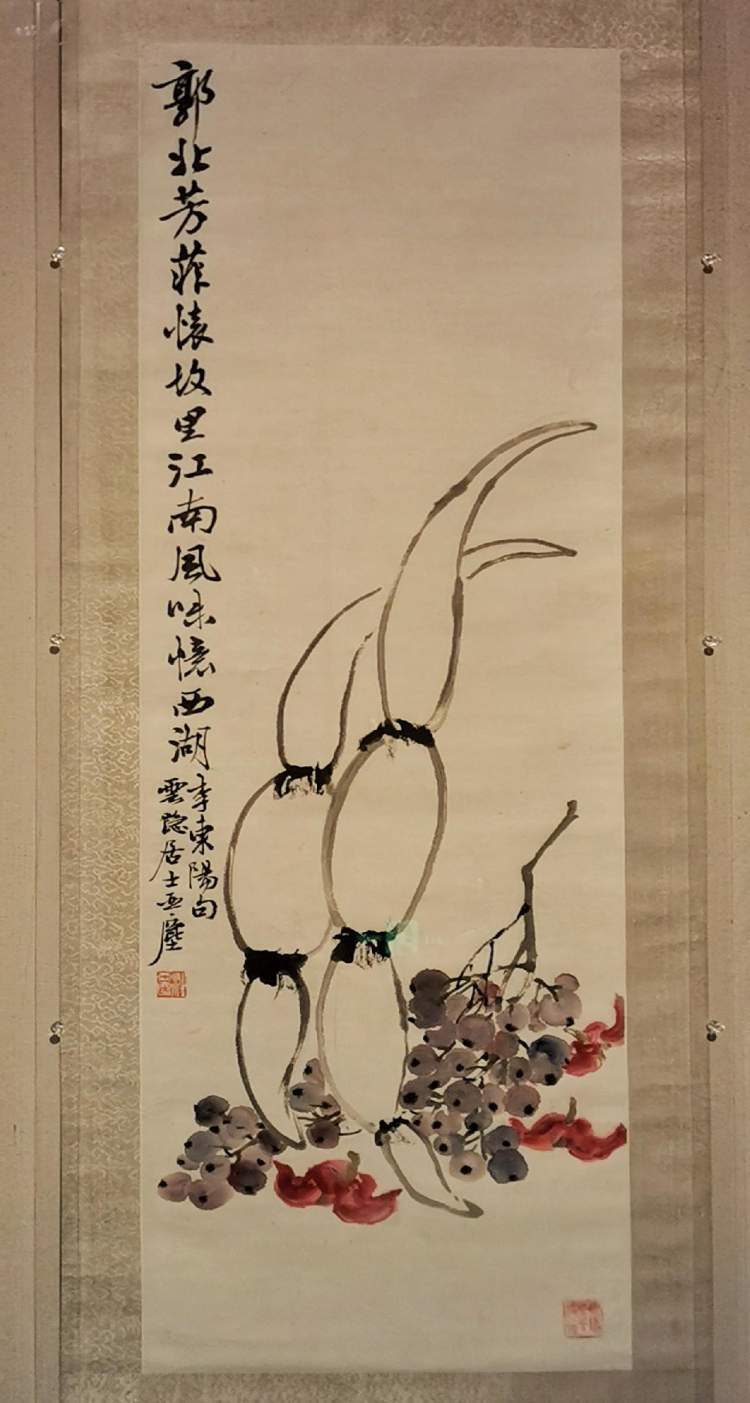 郭北芳菲懷故里江南風味憶西湖
李東陽句
雲隱居士亞塵